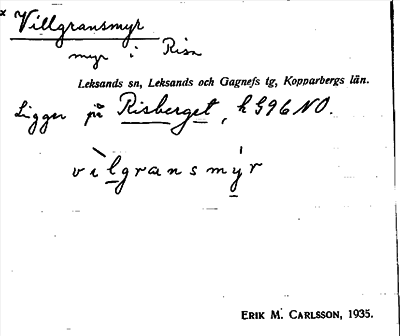 x Villgransmyr
myr i Risa
Leksands sn, Leksands och Gagnefs tg, Kopparbergs län.
Ligger på Risberget, k G96 NO.
vìlgransmýr
ERIK M. CARLSSON, 1935.